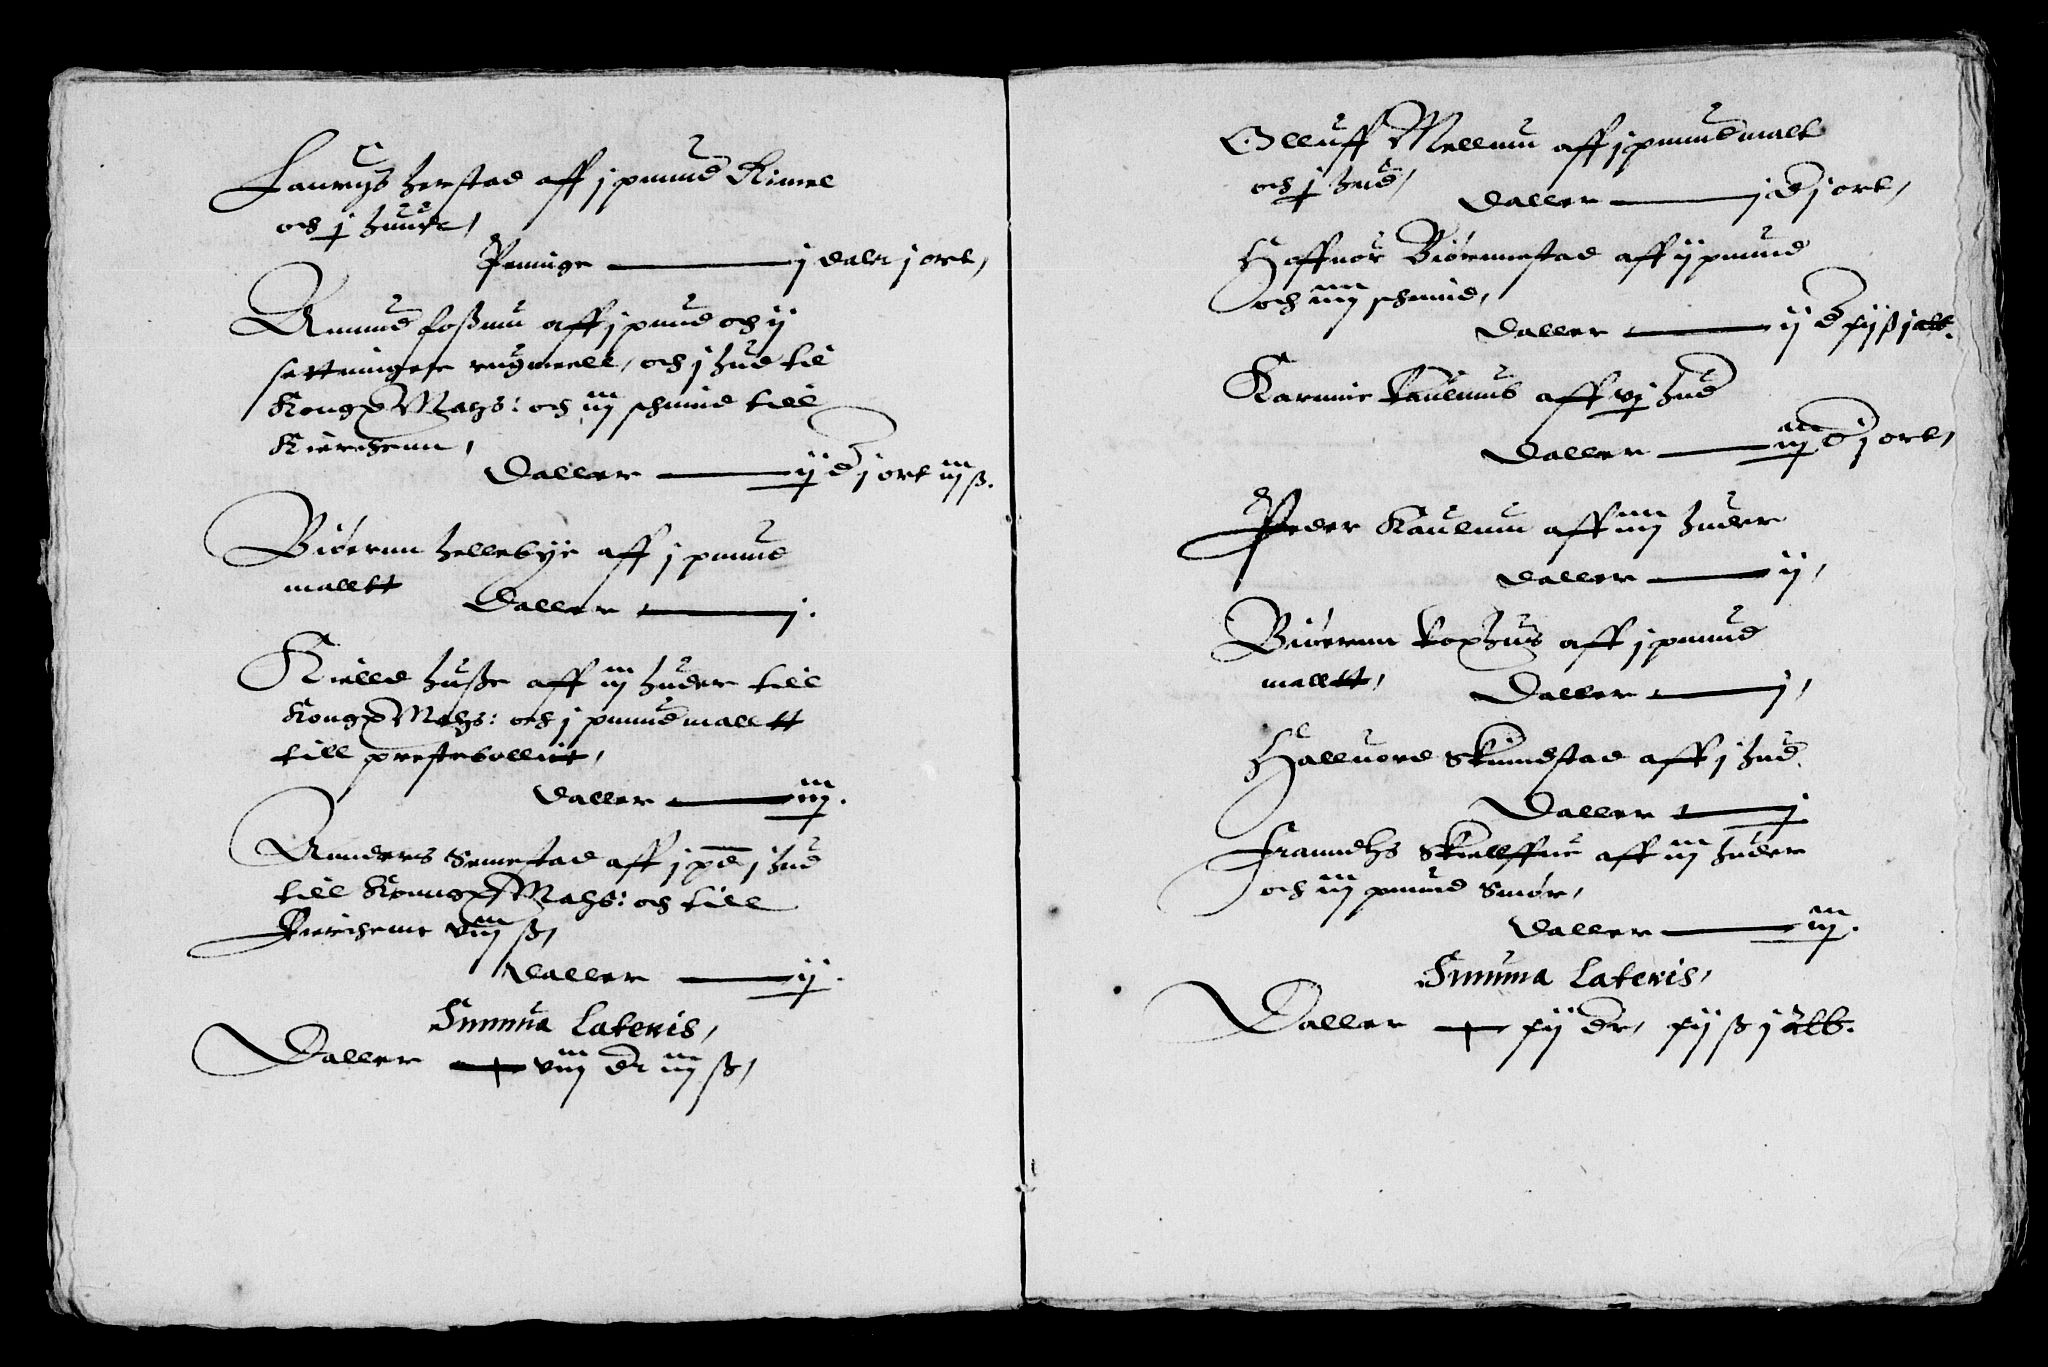 Lauryds herstad aff j punnd Kimel
och j huude,
Penninge j daler j ort,
Amund foßum aff j pund och ij
settninger rugmeell, och j hud til
Kong Maÿs: och iiij schinnd till
Kierchenn,
Daller ij d j ort iiij ß.
Biørnn hellebye aff j punnd
malltt
Daller j.
Kield huße aff iij huder till
Kong Mahs: och j punnd malltt
till prestebollitt,
Daller iij.
Annders Semestad aff j pd j hud
till Konng Mahs: och till
Kierchenn viij ß,
Daller ij.
Summa Lateris,
Daller viij dr iiij ß,
Olluff Mellum aff j punnd malt
och j hud,
Daller j d j ort,
Haffuor Biørnnestad aff ij punnd
och iiij schind,
Daller ij d xij ß j alb.
Karinne Raulnns aff vj hud
Daller iij d j ort,
Peder Kaulum aff iiij huder
Daller ij,
Biørnn Roghus aff j punnd
malltt,
Daller j,
Halluord Skundstad aff j hud
Daller j
Franndhs Skielffue aff iij huder
och iij punnd Smør,
Daller iij.
Summa Lateris,
Daller xij dr, xij ß j alb.